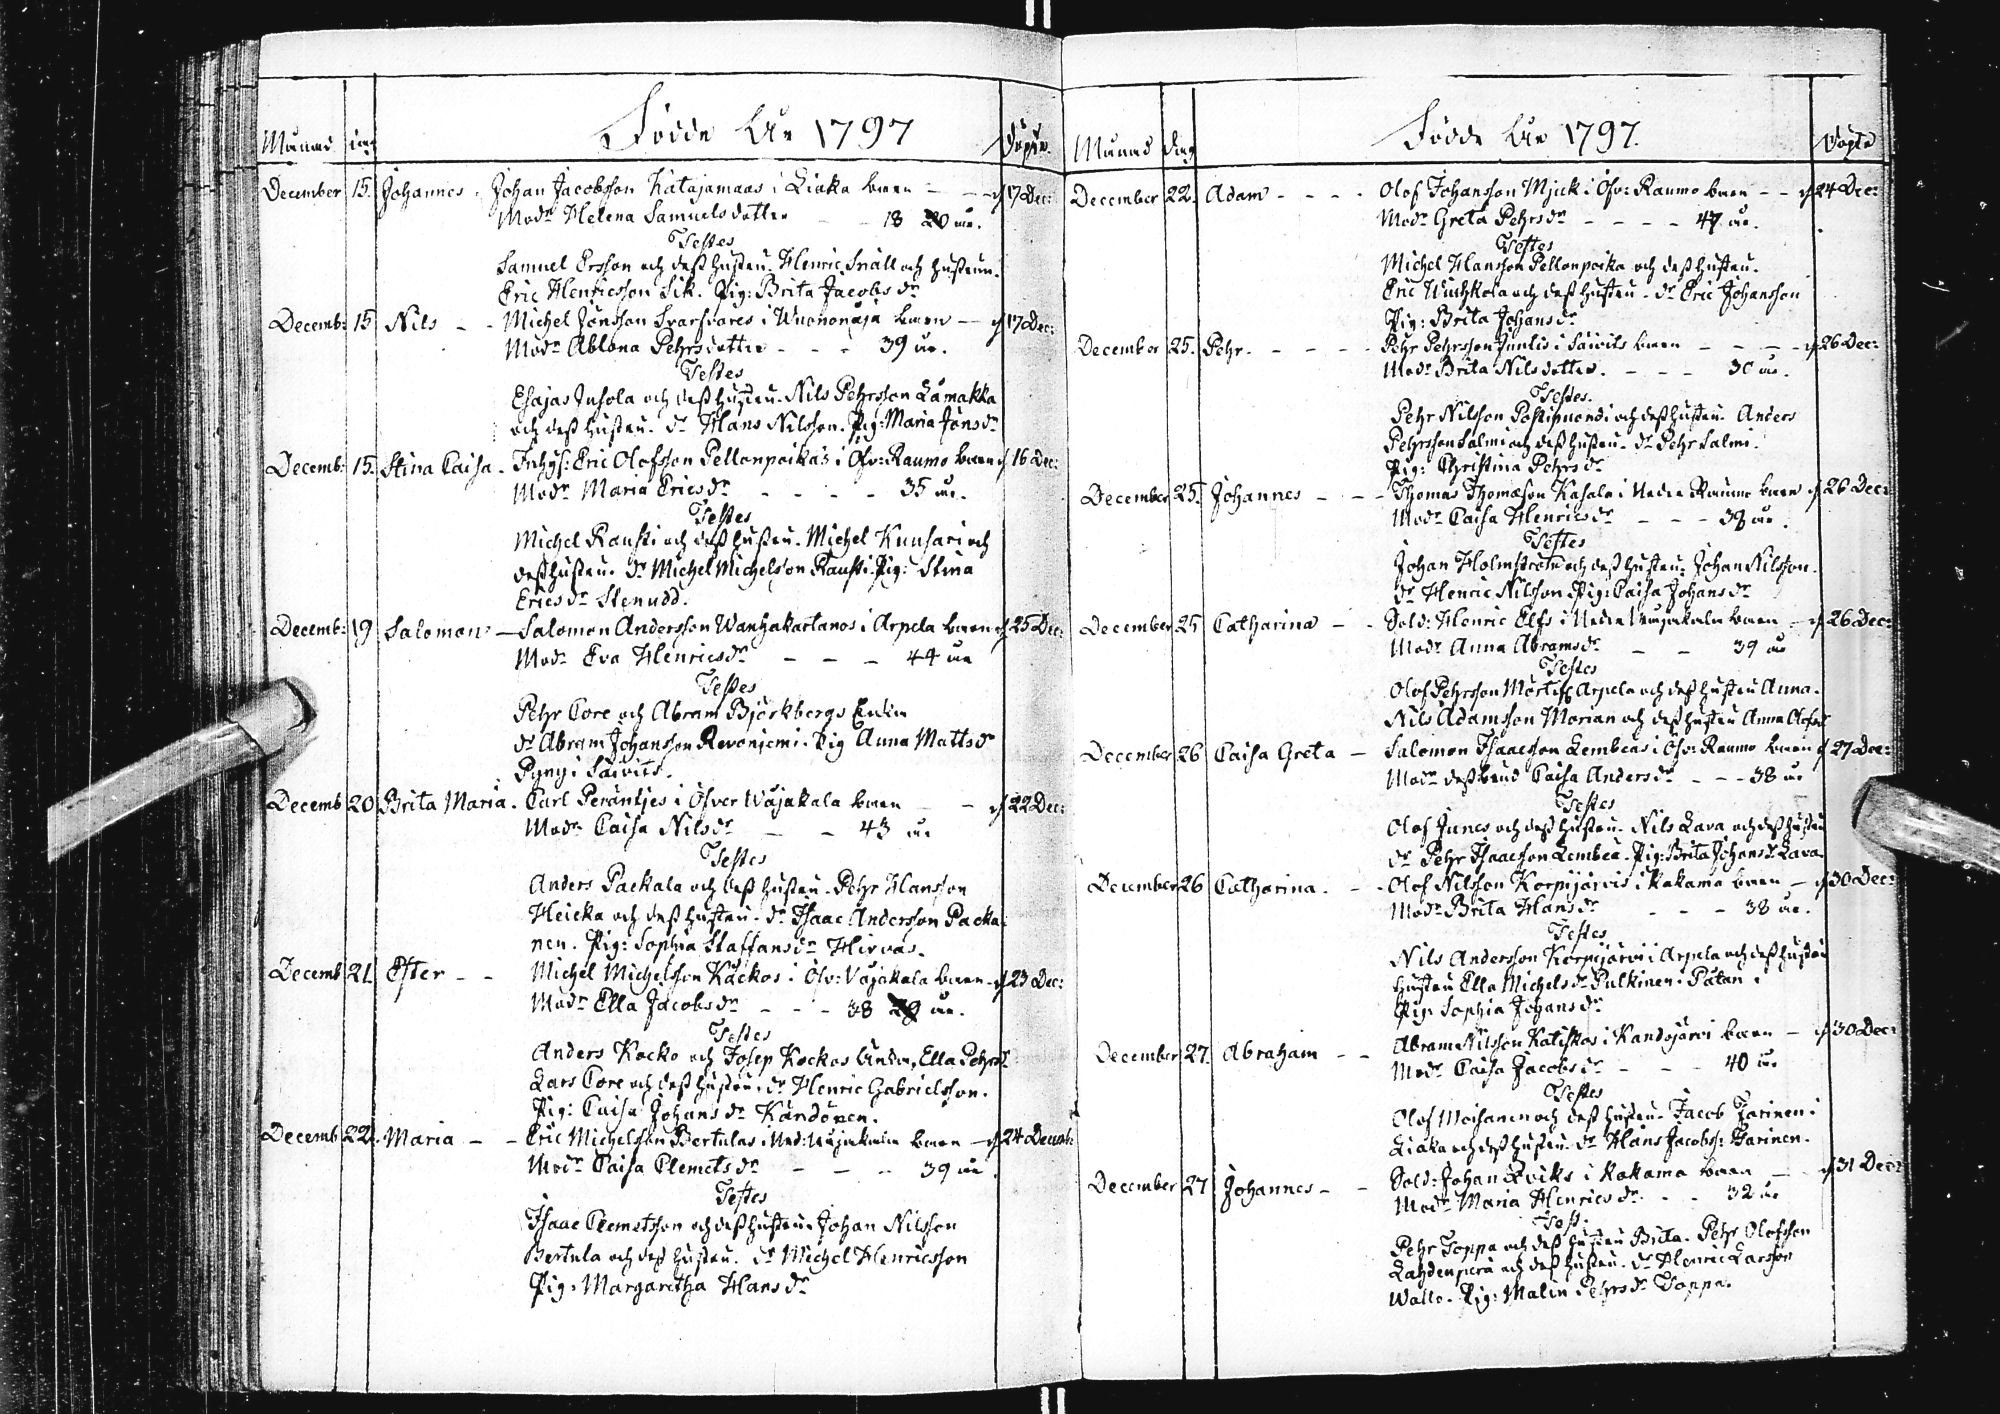 Födde År 1797
Månad dag Döpte.
December 15. Johannes. Johan Jacobsson Katajamaas i Liaka barn — d 17 Dec:
Modr Helena Samuelsdotter — 18 år.
Testes
Samuel Ersson och dess hustru. Henric Snäll och hustrun.
Eric Henricsson Sik. Pig: Brita Jacobs dr
Decemb: 15 Nils — Michel Jönsson Svarfvares i Wuononäja barn — d 17 Dec:
Modr Ablona Pehrsdotter — 39 år.
Testes
Esajas Juhola och dess hustru. Nils Pehrsson Lamakka
och dess hustru. dr Hans Nilsson. Pig: Maria Jöns dr
Decemb: 15. Stina Caisa. Inhys: Eric Olofsson Pellonpoikas i Öfv: Raumo barn d 16 Dec:
Modr Maria Erics dr — 35 år.
Testes
Michel Rausti och dess hustru. Michel Kuusari och
dess hustru. dr Michel Michelsson Rausti. Pig: Stina
Erics dr Stenudd.
Decemb: 19 Salomon — Salomon Andersson Wanhakartanos i Arpela barn d 25 Dec:
Modr Eva Henrics dr — 44 år
Testes
Pehr Core och Abram Björkbergs Enkia
dr Abram Johansson Revonjemi. Pig Anna Matts dr
Pyny i Saivits.
Decemb 20 Brita Maria. Carl Peräntjes i Öfver Wäjakala barn — d 22 Dec:
Modr Caisa Nils dr — 43 år
Testes
Anders Packala och dess hustru. Pehr Hansson
Heicka och dess hustru. dr Isaac Andersson Packa-
nen. Pig: Sophia Staffans dr Hirvas.
Decemb 21 Ester — Michel Michelsson Käckos i Öfv: Väjakala barn. d 23 Dec:
Modr Ella Jacobs dr — 38 år.
Testes
Anders Kocko och Josep Kockos Enkia, Ella Pehrs dr
Lars Core och dess hustru. dr Henric Gabrielsson.
Pig: Caisa Johans dr Kändönen.
Decemb 22. Maria — Eric Michelsson Bertulas i Ned: Wäjakala barn — d 24 Decemb:
Modr Caisa Clemets dr — 39 år
Testes
Isaac Clemetsson och dess hustru. Johan Nilsson
Bertula och dess hustru. dr Michel Henricsson
Pig: Margaretha Hans dr
Födde År 1797.
Månad dag Döpte
December 22. Adam — Olof Johansson Mjuk i Öfv: Raumo barn — d 24 Dec:
Modr Greta Pehrs dr — 47 år.
Testes
Michel Hansson Pellonpoika och dess hustru.
Eric och dess hustru. dr Eric Johansson
Pig: Brita Johans dr
December 25. Pehr. — Pehr Pehrsson i Saivits barn — d 26 Dec:
Modr Brita Nilsdotter. — 30 år.
Testes.
Pehr Nilsson och dess hustru. Anders
Pehrsson Salmi och dess hustru. dr Pehr Salmi.
Pig: Christina Pehrs dr
December 25. Johannes — Thomas Thomæson Kasala i Nedra Raumo barn d 26 Dec:
Modr Caisa Henrics dr — 38 år.
Testes
Johan Holmström och dess hustru. Johan Nilsson.
dr Henric Nilsson. Pig: Caisa Johans dr
December 25 Catharina — Sold: Henric Elfs i Nedra Wäjakala barn — d 26 Dec:
Modr Anna Abrams dr — 39 år
Testes
Olof Pehrsson Mörtiss Arpela och dess hustru Anna.
Nils Adamsson Morian och dess hustru Anna Olofs dr
December 26 Caisa Greta — Salomon Isaacsson Lembeas i Öfv: Raumo barn d 27 Dec:
Modr dess brud Caisa Anders dr — 38 år
Testes
Olof Junes och dess hustru. Nils Lava och dess hustru
dr Pehr Isaacsson Lembea. Pig: Brita Johans dr Lava
December 26 Catharina. — Olof Nilsson Korpijärvis i Kakama barn — d 30 Dec:
Modr Brita Hans dr — 38 år.
Testes
Nils Andersson Korpijärvi i Arpela och dess hustru
hustru Ella Michels dr Pulkinen. Patan i
Pig: Sophia Johans dr
December 27. Abraham — Abram Nilsson Katiskos i Kandojärvi barn — d 30 Dec:
Modr Caisa Jacobs dr — 40 år
Testes
Olof Moisanen och dess hustru. Jacob Jarinen i
Liaka och dess hustru. dr Hans Jacobss: Jarinen.
December 27 Johannes — Sold: Johan Qviks i Kakama barn — d 31 Dec:
Modr Maria Henrics dr — 32 år
Test.
Pehr Toppa och dess hustru Brita. Pehr Olofsson
Lahdenperä och dess hustru. dr Henric Larsson
Wallo. Pig: Malin Pehrs dr Toppa.